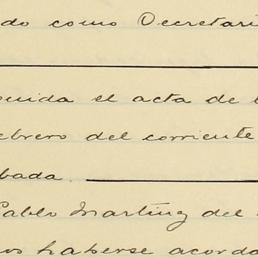 do como Secretari
uida el acta de l
ebrero del corriente
bada.
Pablo Martinz del
os haberse acorda